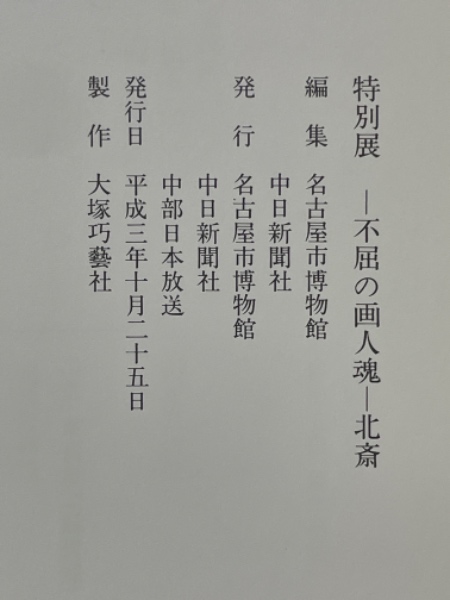 特別展　―不屈の画人魂―北斎
編　集　名古屋市博物館
中日新聞社
発　行　名古屋市博物館
中日新聞社
中部日本放送
発行日　平成三年十月二十五日
製　作　大塚巧藝社